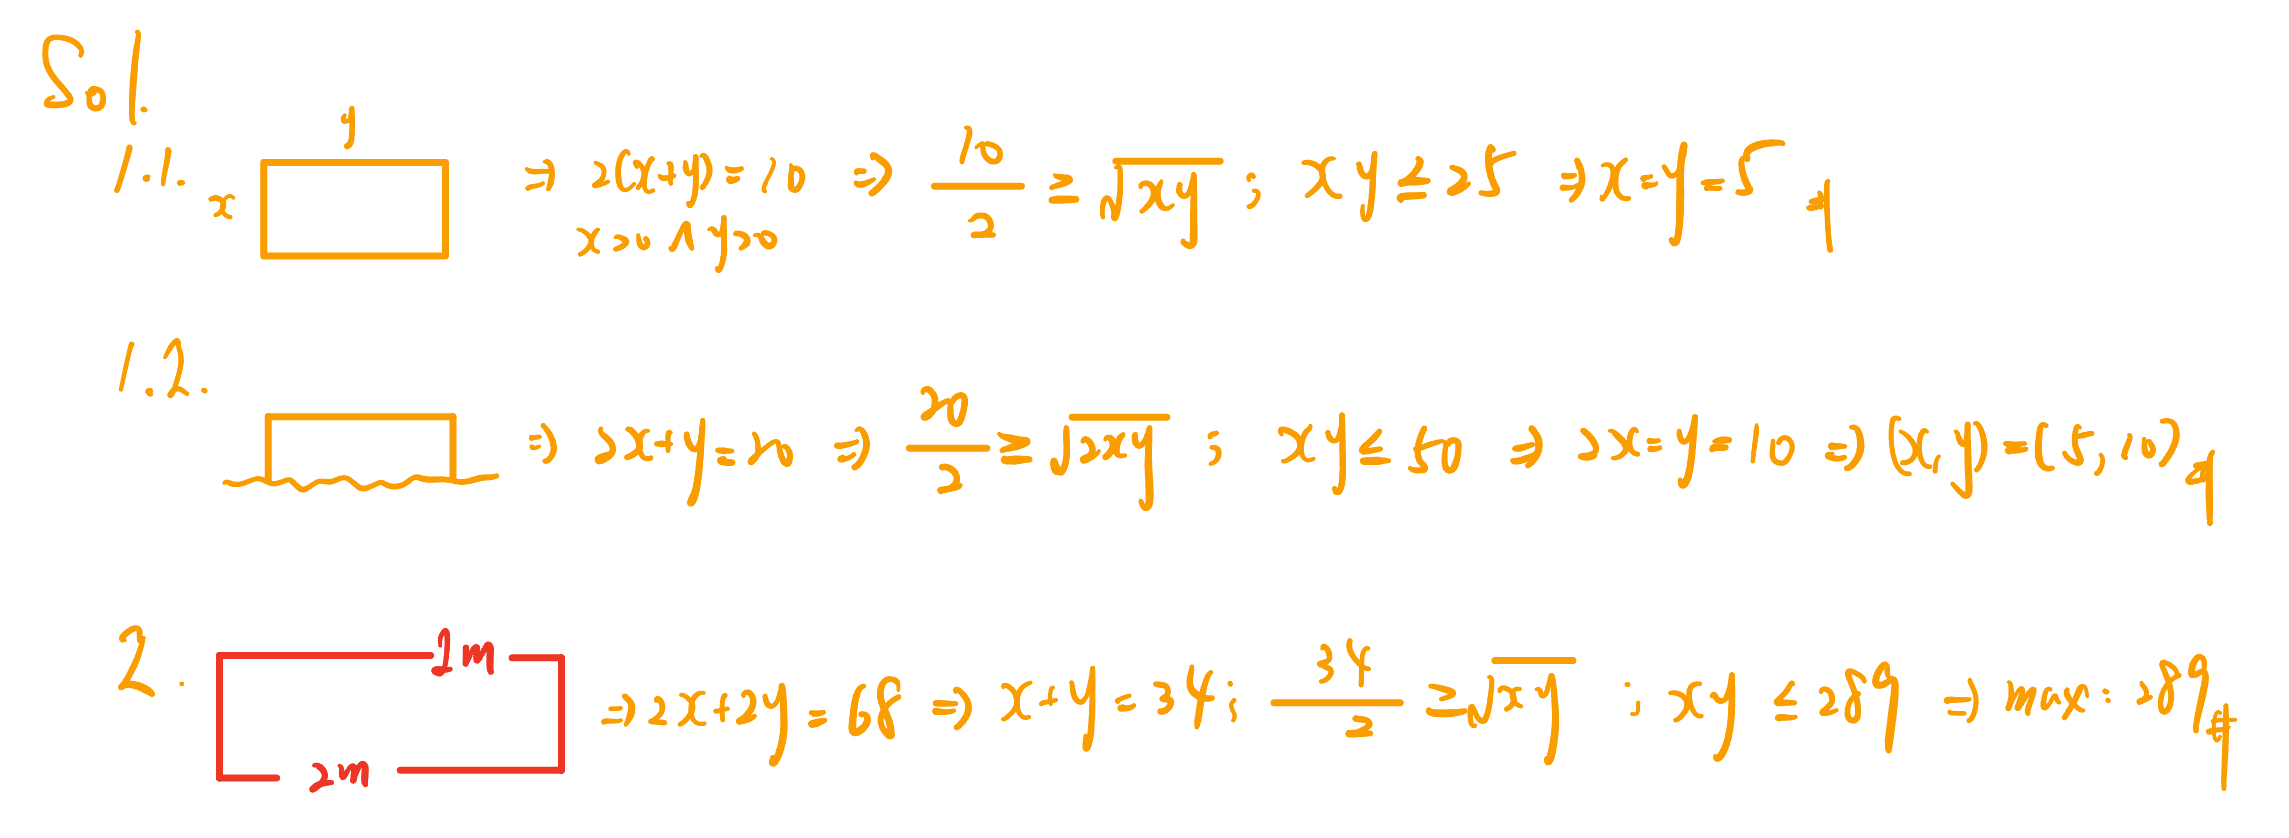 Sol.
1.1. x y ⇒ 2(x+y)=10 ⇒ 10/2 ≥ √xy ; xy ≤ 25 ⇒ x=y=5 #
x>0 ∧ y>0
1.2. ⇒ 2x+y=20 ⇒ 20/2 ≥ √2xy ; xy ≤ 50 ⇒ 2x=y=10 ⇒ (x,y)=(5,10) #
2. 1m 2m ⇒ 2x+2y=68 ⇒ x+y=34; 34/2 ≥ √xy ; xy ≤ 289 ⇒ max: 289 #